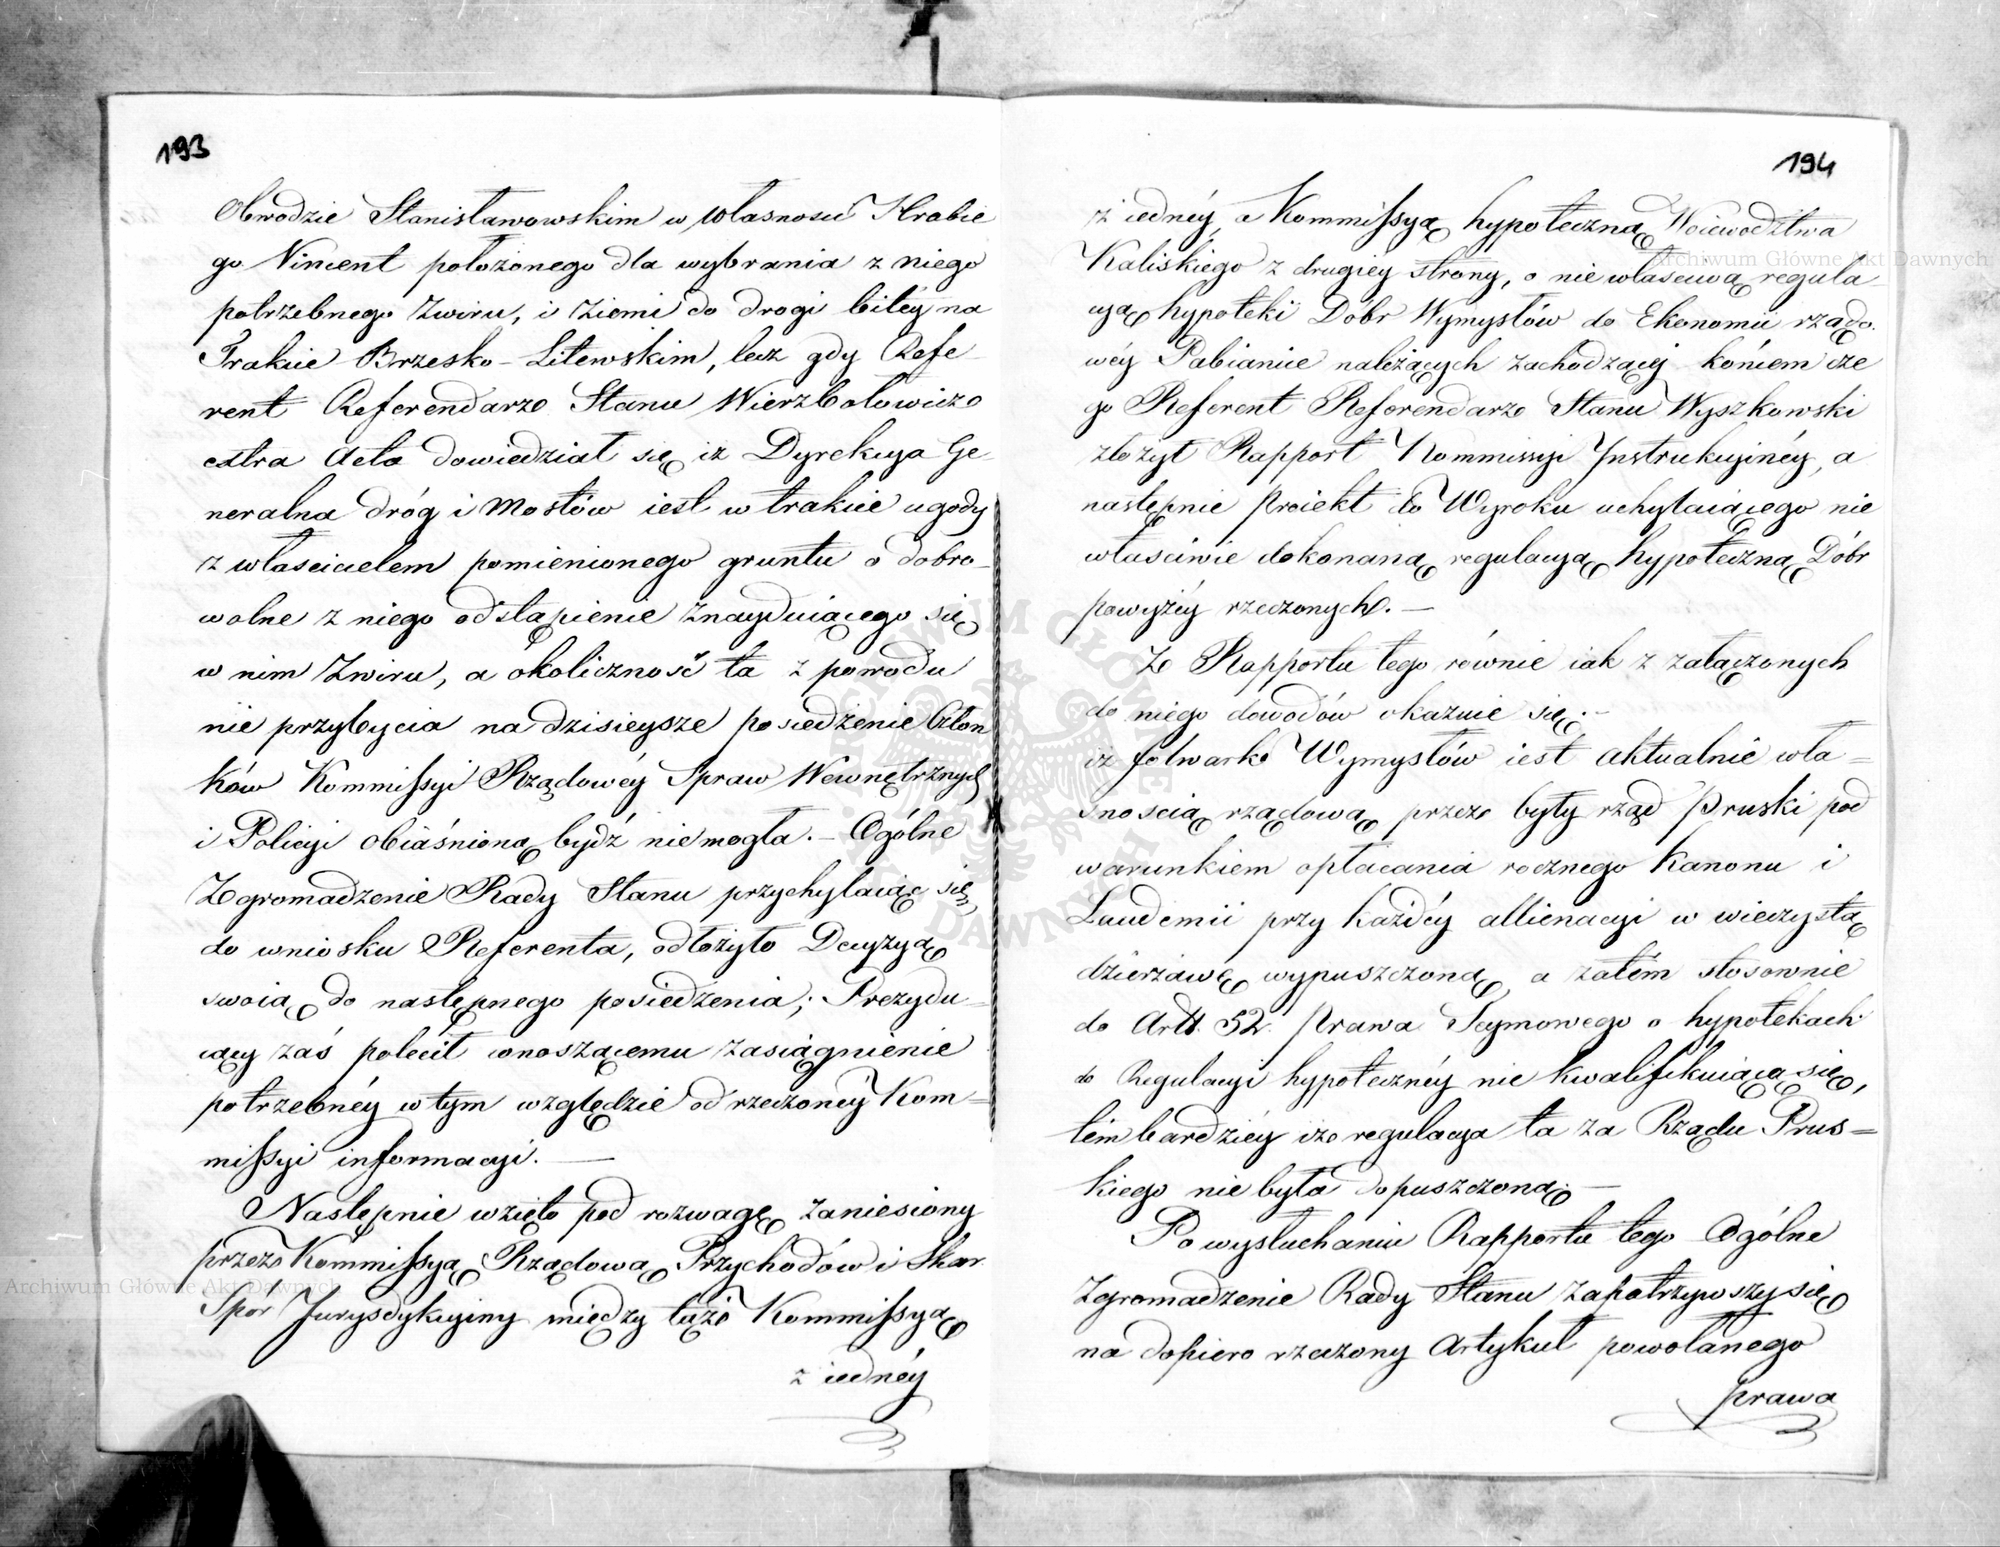 193
Obwodzie Stanisławowskim w własności Hrabie
go Vincent położonego dla wybrania z niego
potrzebnego Zwiru, i Ziemi do drogi bitéy na
Trakcie Brzesko-Litewskim, lecz gdy Refe
rent Referendarz Stanu Wierzbołowicz
extra Acta dowiedział się iż Dyrekcya Ge
neralna dróg i Mostów iest w trakcie ugody
z włascicielem pomienionego gruntu o dobro
wolne z niego odstąpienie znayduiącego się
w nim Zwiru, a okoliczność ta z powodu
nie przybycia na dzisieysze posiedzenie Człon
ków Kommissyi Rządowéy Spraw Wewnętrznych
i Policyi obiaśnioną bydź nie mogła. – Ogólne
Zgromadzenie Rady Stanu przychylaiąc się
do wniosku Referenta, odłożyło Decyzyą
swoią do następnego posiedzenia; Prezydu-
iący zaś polecił wnoszącemu zasiągnienie
potrzebnéy w tym względzie od rzeczonéy Kom=
missyi informacyi. —
Następnie wzięto pod rozwagę zaniesiony
przez Kommissyą Rządową Przychodów i Skar
Spor Jurysdykcyiny między tąż Kommissyą
z iednéy
194
z iednéy, a Kommissyą hypoteczną Woiewodztwa
Kaliskiego z drugiey strony, o nie własciwą regula
cyą hypoteki Dóbr Wymysłów do Ekonomii rządo
wéy Pabianice należących zachodzący końcem cze
go Referent Referendarz Stanu Wyszkowski
złożył Rapport Kommissyi Instrukcyinéy, a
następnie Proiekt do Wyroku uchylaiącego nie
właściwie dokonaną regulacyą hypoteczną Dóbr
powyżéy rzeczonych. —
Z Rapportu tego równie iak z załączonych
do niego dowodów okazuie się. —
iż folwark Wymysłów iest aktualnie wła=
snoscią rządową przez były rząd Pruski pod
warunkiem opłacania rocznego Kanonu i
Laudemii przy każdéy allienacyi w wieczystą
dzierzawę wypuszczoną, a zatém stosownie
do Artt. 52. Prawa Seymowego o hypotekach
do Regulacyi hypotecznéy nie kwalifikuiącą się,
tém bardziéy iż regulacya ta za Rządu Prus=
kiego nie była dopuszczoną. —
Po wysłuchaniu Rapportu tego Ogólne
Zgromadzenie Rady Stanu zapatrzywszy się
na dopiero rzeczony Artykuł powołanego
prawa
Archiwum Główne Akt Dawnych
Archiwum Główne Akt Dawnych
ARCHIWUM GŁÓWNE AKT DAWNYCH